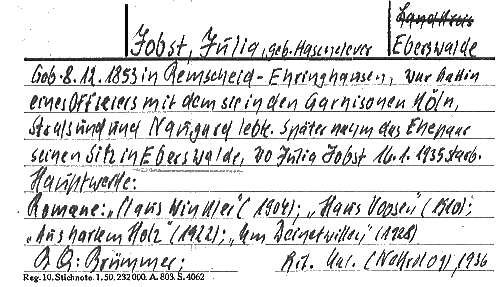 Landkreis
Jobst, Julia, geb. Hasenclever Eberswalde
Geb. 8.12.1853 in Remscheid-Ehringhausen, war Gattin
eines Offiziers mit dem sie in den Garnisonen Köln,
Stralsund und Naugard lebte. Später nahm das Ehepaar
seinen Sitz in Eberswalde, wo Julia Jobst 16.1.1935 starb.
Hauptwerke:
Romane: „Claus Windler“ (1904); „Hans Vopsen“ (1910);
„Aus hartem Holz“ (1922); „Um Deinetwillen“ (1928)
B. Q.: Brümmer; Lit. (Nekrolog) 1936
Reg. 10. Stichnote. 1. 50, 232 000. A. 803. S. 4062